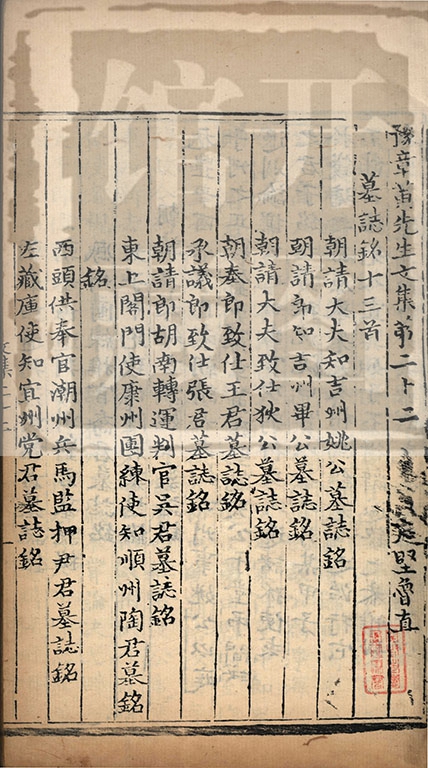 豫章黄先生文集第二十二 庭堅魯直
墓誌銘十三首
朝請大夫知吉州姚公墓誌銘
朝請郎知吉州畢公墓誌銘
朝請大夫致仕狄公墓誌銘
朝奉郎致仕王君墓誌銘
承議郎致仕張君墓誌銘
朝請郎胡南轉運判官吳君墓誌銘
東上閤門使康州團練使知順州陶君墓
銘
西頭供奉官潮州兵馬監押尹君墓誌銘
左藏庫使知宜州党君墓誌銘